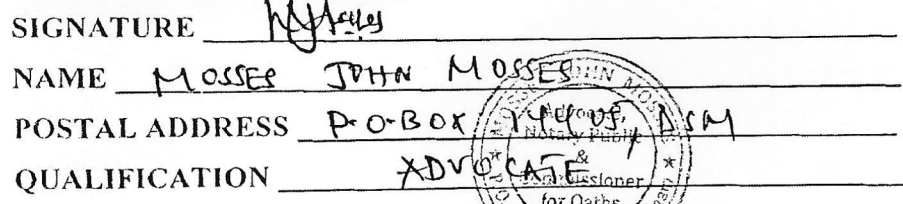 SIGNATURE
NAME MOSSES JOHN MOSSES
POSTAL ADDRESS P.O.BOX, DSM
QUALIFICATION ADVOCATE
Advocate,
Notary Public
&
Commissioner
for Oaths